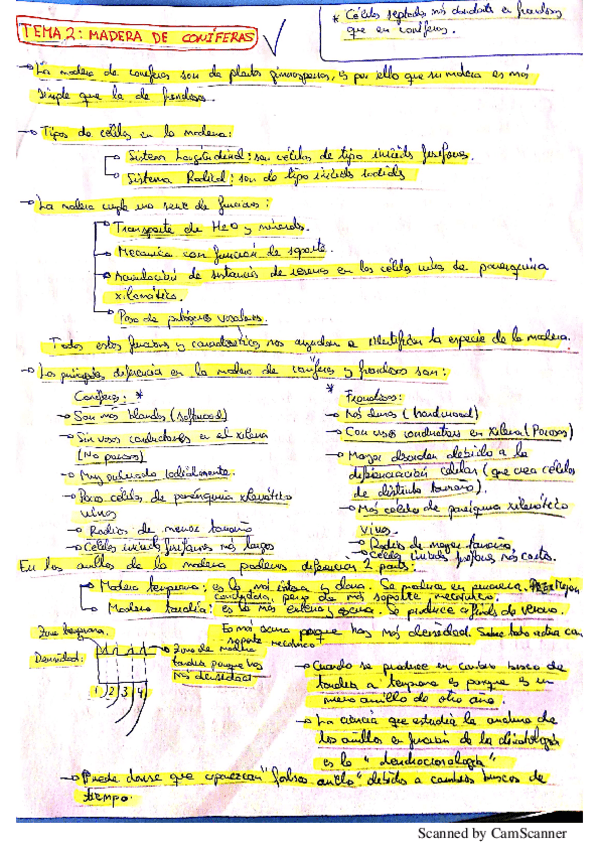 TEMA 2: MADERA DE CONÍFERAS
* Células septadas más abundante en frondosas
que en coníferas.
→ La madera de coníferas son de plantas gimnospermas, es por ello que su madera es más
simple que la de frondosas.
→ Tipos de células en la madera:
Sistema Longitudinal: son células de tipo iniciales fusiformes.
Sistema Radial: son de tipo iniciales radiales
→ La madera cumple una serie de funciones:
Transporte de H2O y minerales.
Mecanica con función de soporte.
Acumulación de sustancias de reserva en las células vivas de parenquima
xilemático.
Paso de patógenos vasculares.
Todas estas funciones y características nos ayudan a identificar la especie de la madera.
→ Las principales diferencia en la madera de coníferas y frondosas son:
Coníferas: *
→ Son más blandas (softwood)
→ Sin vasos conductores en el xilema
(No porosas)
→ Muy ordenada radialmente.
→ Poca células de parénquima xilemático
vivas
→ Radios de menor tamaño
→ Células iniciales fusiformes más largas
* Frondosas:
→ Más duras (hardwood)
→ Con vasos conductores en xilema (Porosas)
→ Mayor desorden debido a la
diferenciación celular (que crea células
de distinto tamaño).
→ Más célula de parénquima xilemático
vivas.
→ Radios de mayor tamaño.
→ Células iniciales fusiformes más cortas.
En los anillos de la madera podemos diferenciar 2 partes:
Madera temprana: es la más interna y clara. Se produce en primavera. Mejor
conductora, pero de más soporte mecánico.
Madera tardía: es la más externa y oscura. Se produce a finales de verano.
Es más oscura porque hay más densidad. Sobre todo actúa con
soporte mecánico
Zona temprana.
Densidad:
→ Zona de madera
tardía porque hay
más densidad
1 2 3 4
→ Cuando se produce un cambio brusco de
tardía a temprana es porque es un
nuevo anillo de otro año.
→ La ciencia que estudia la anchura de
los anillos en función de la climatología
es la "dendrocronología"
→ Puede darse que aparezcan "falsos anillo" debido a cambios bruscos de
tiempo.
Scanned by CamScanner